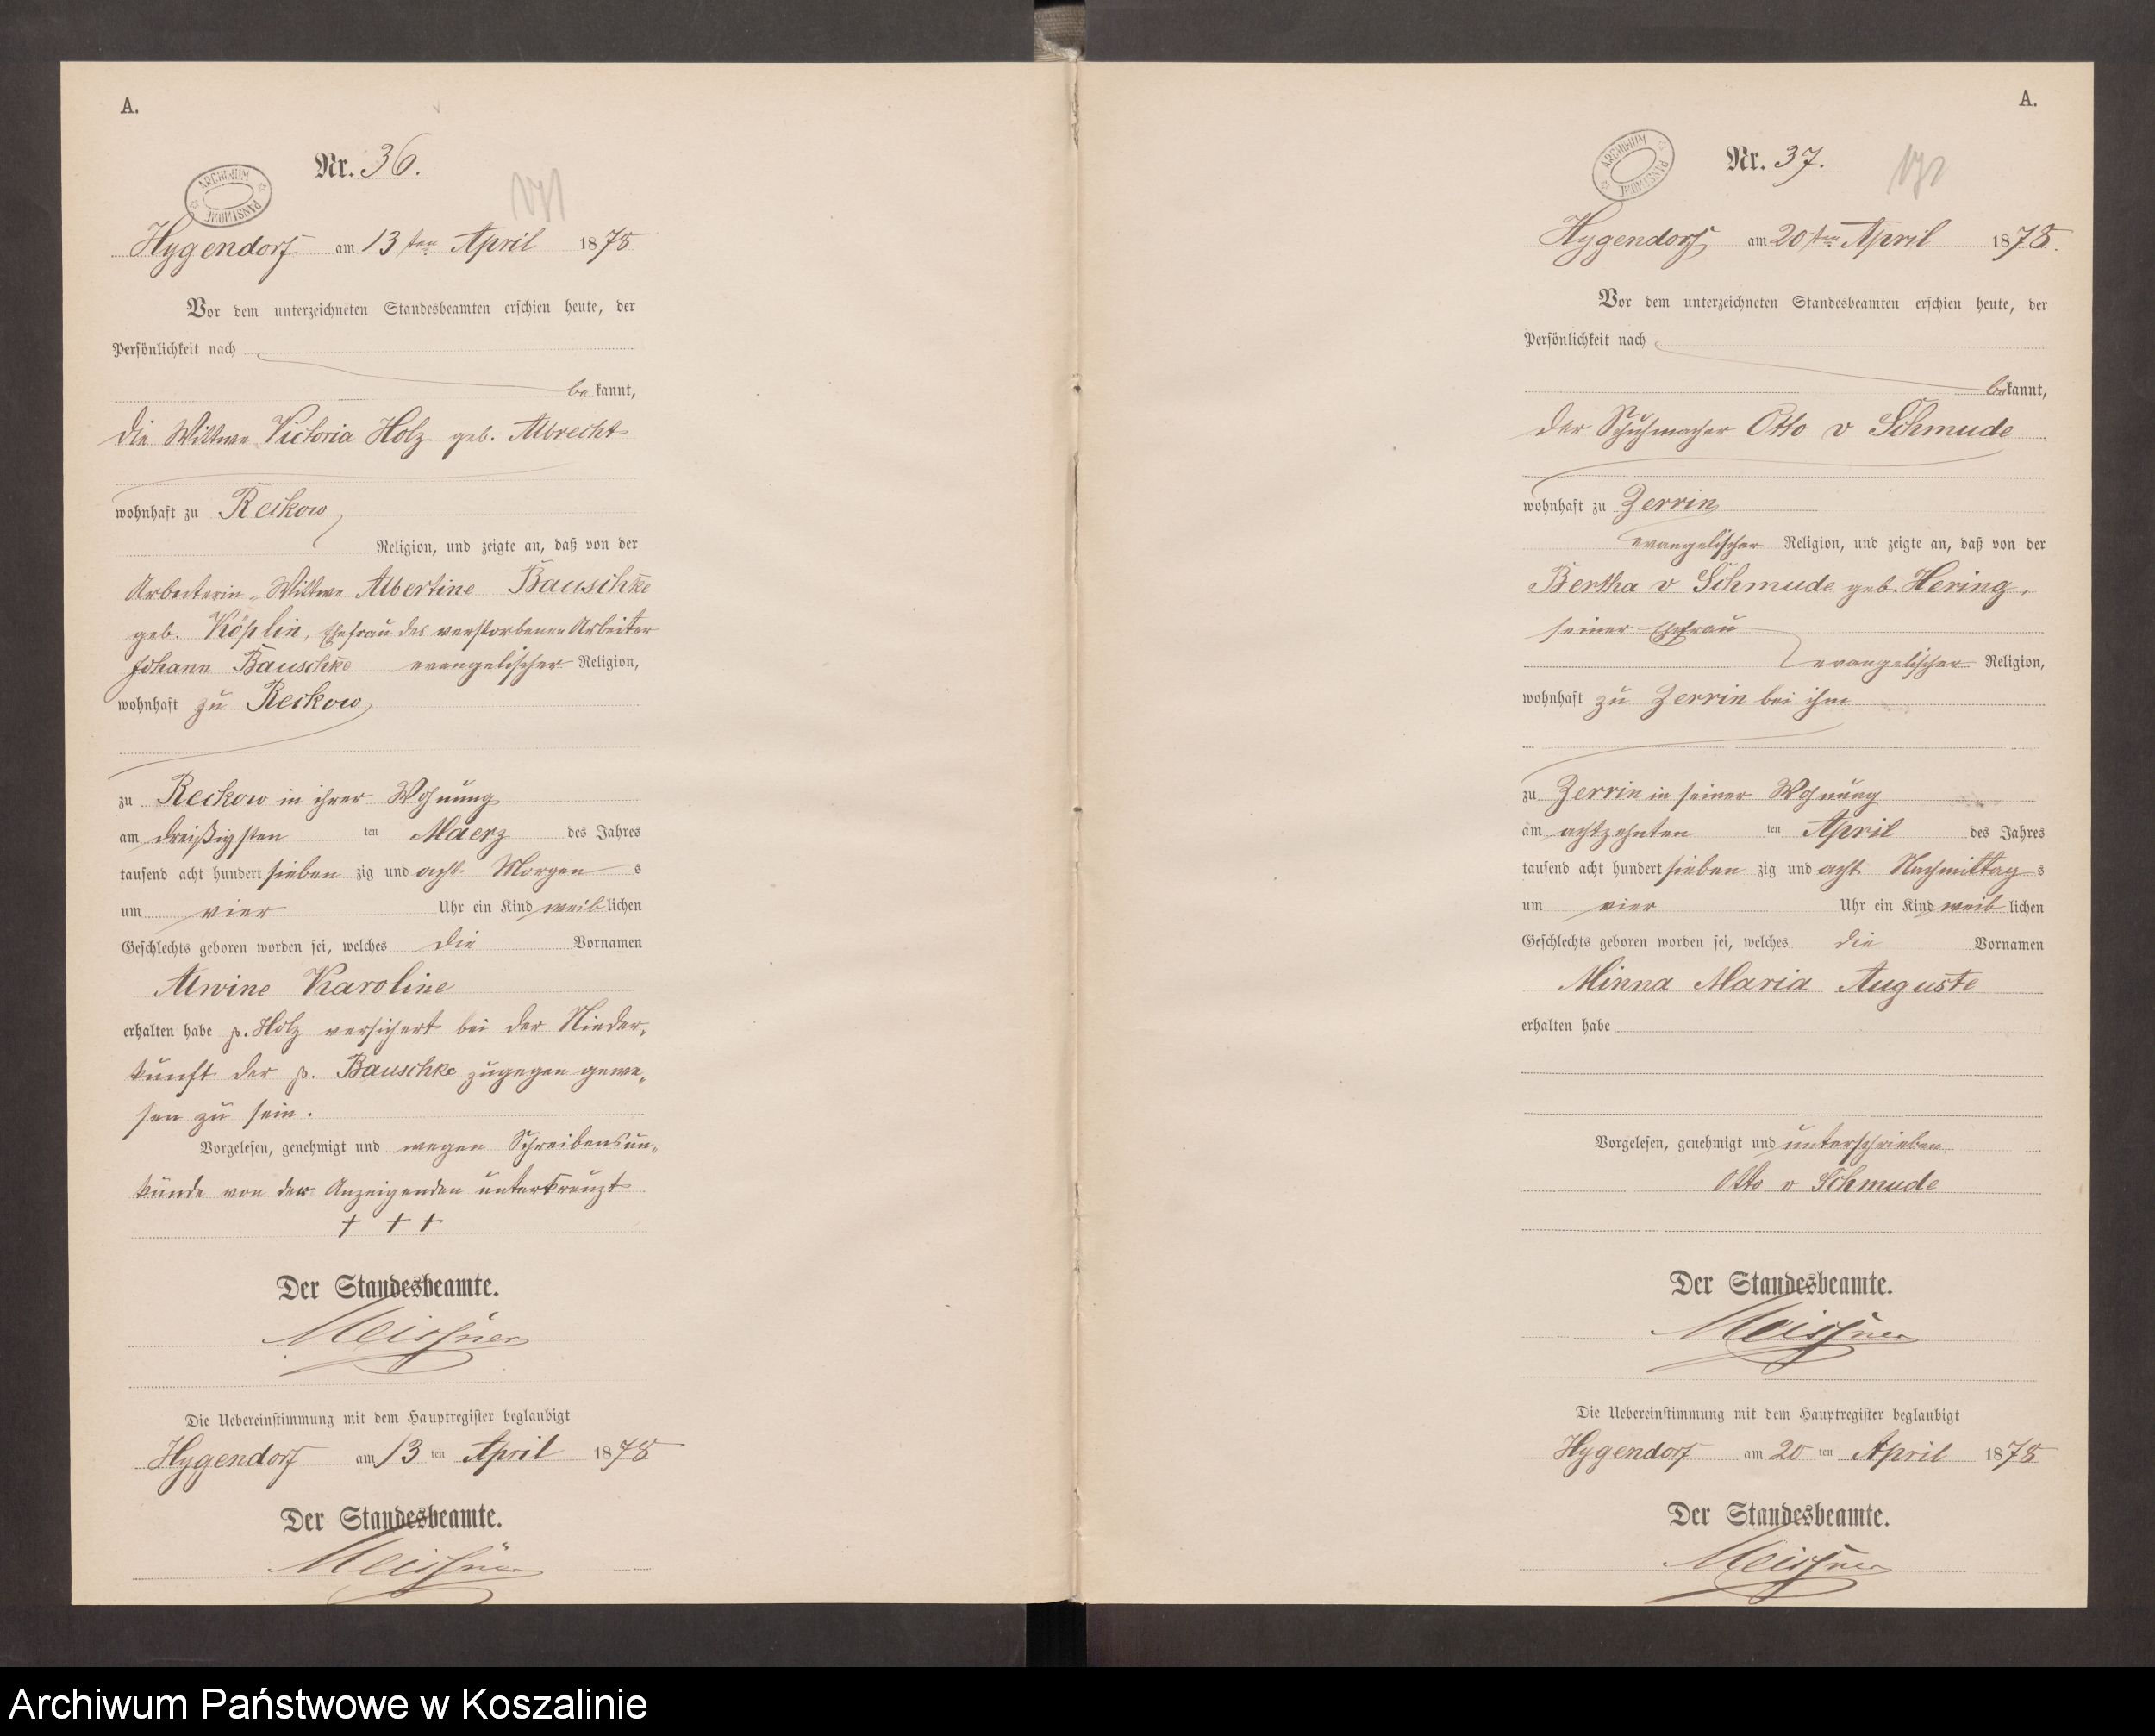 A.
Nr. 36.
ARCHIWUM PAŃSTWOWE
Hygendorf am 13ten April 1878
Vor dem unterzeichneten Standesbeamten erschien heute, der
Persönlichkeit nach
bekannt,
die Wittwe Victoria Holz geb. Albrecht
wohnhaft zu Reckow
Religion, und zeigte an, daß von der
Arbeiterin-Wittwe Albertine Bauschke
geb. Köplin, Ehefrau des verstorbenen Arbeiter
Johann Bauschke evangelischer Religion,
wohnhaft zu Reckow
zu Reckow in ihrer Wohnung
am dreißigsten ten Maerz des Jahres
tausend acht hundert siebenzig und acht Morgens
um vier Uhr ein Kind weiblichen
Geschlechts geboren worden sei, welches die Vornamen
Alwine Karoline
erhalten habe p. Holz versichert bei der Nieder-
kunft der p. Bauschke zugegen gewe-
sen zu sein.
Vorgelesen, genehmigt und wegen Schreibensun-
kunde von der Anzeigenden unterkreuzt
+ + +
Der Standesbeamte.
Meissner
Die Uebereinstimmung mit dem Hauptregister beglaubigt
Hygendorf am 13ten April 1878
Der Standesbeamte.
Meissner
A.
Nr. 37.
ARCHIWUM PAŃSTWOWE
Hygendorf am 20ten April 1878.
Vor dem unterzeichneten Standesbeamten erschien heute, der
Persönlichkeit nach
bekannt,
der Schuhmacher Otto v Schmude
wohnhaft zu Zerrin
evangelischer Religion, und zeigte an, daß von der
Bertha v Schmude geb. Hering,
seiner Ehefrau
evangelischer Religion,
wohnhaft zu Zerrin bei ihm
zu Zerrin in seiner Wohnung
am achtzehnten ten April des Jahres
tausend acht hundert siebenzig und acht Nachmittags
um vier Uhr ein Kind weiblichen
Geschlechts geboren worden sei, welches die Vornamen
Minna Maria Auguste
erhalten habe
Vorgelesen, genehmigt und unterschrieben
Otto v Schmude
Der Standesbeamte.
Meissner
Die Uebereinstimmung mit dem Hauptregister beglaubigt
Hygendorf am 20ten April 1878
Der Standesbeamte.
Meissner
Archiwum Państwowe w Koszalinie